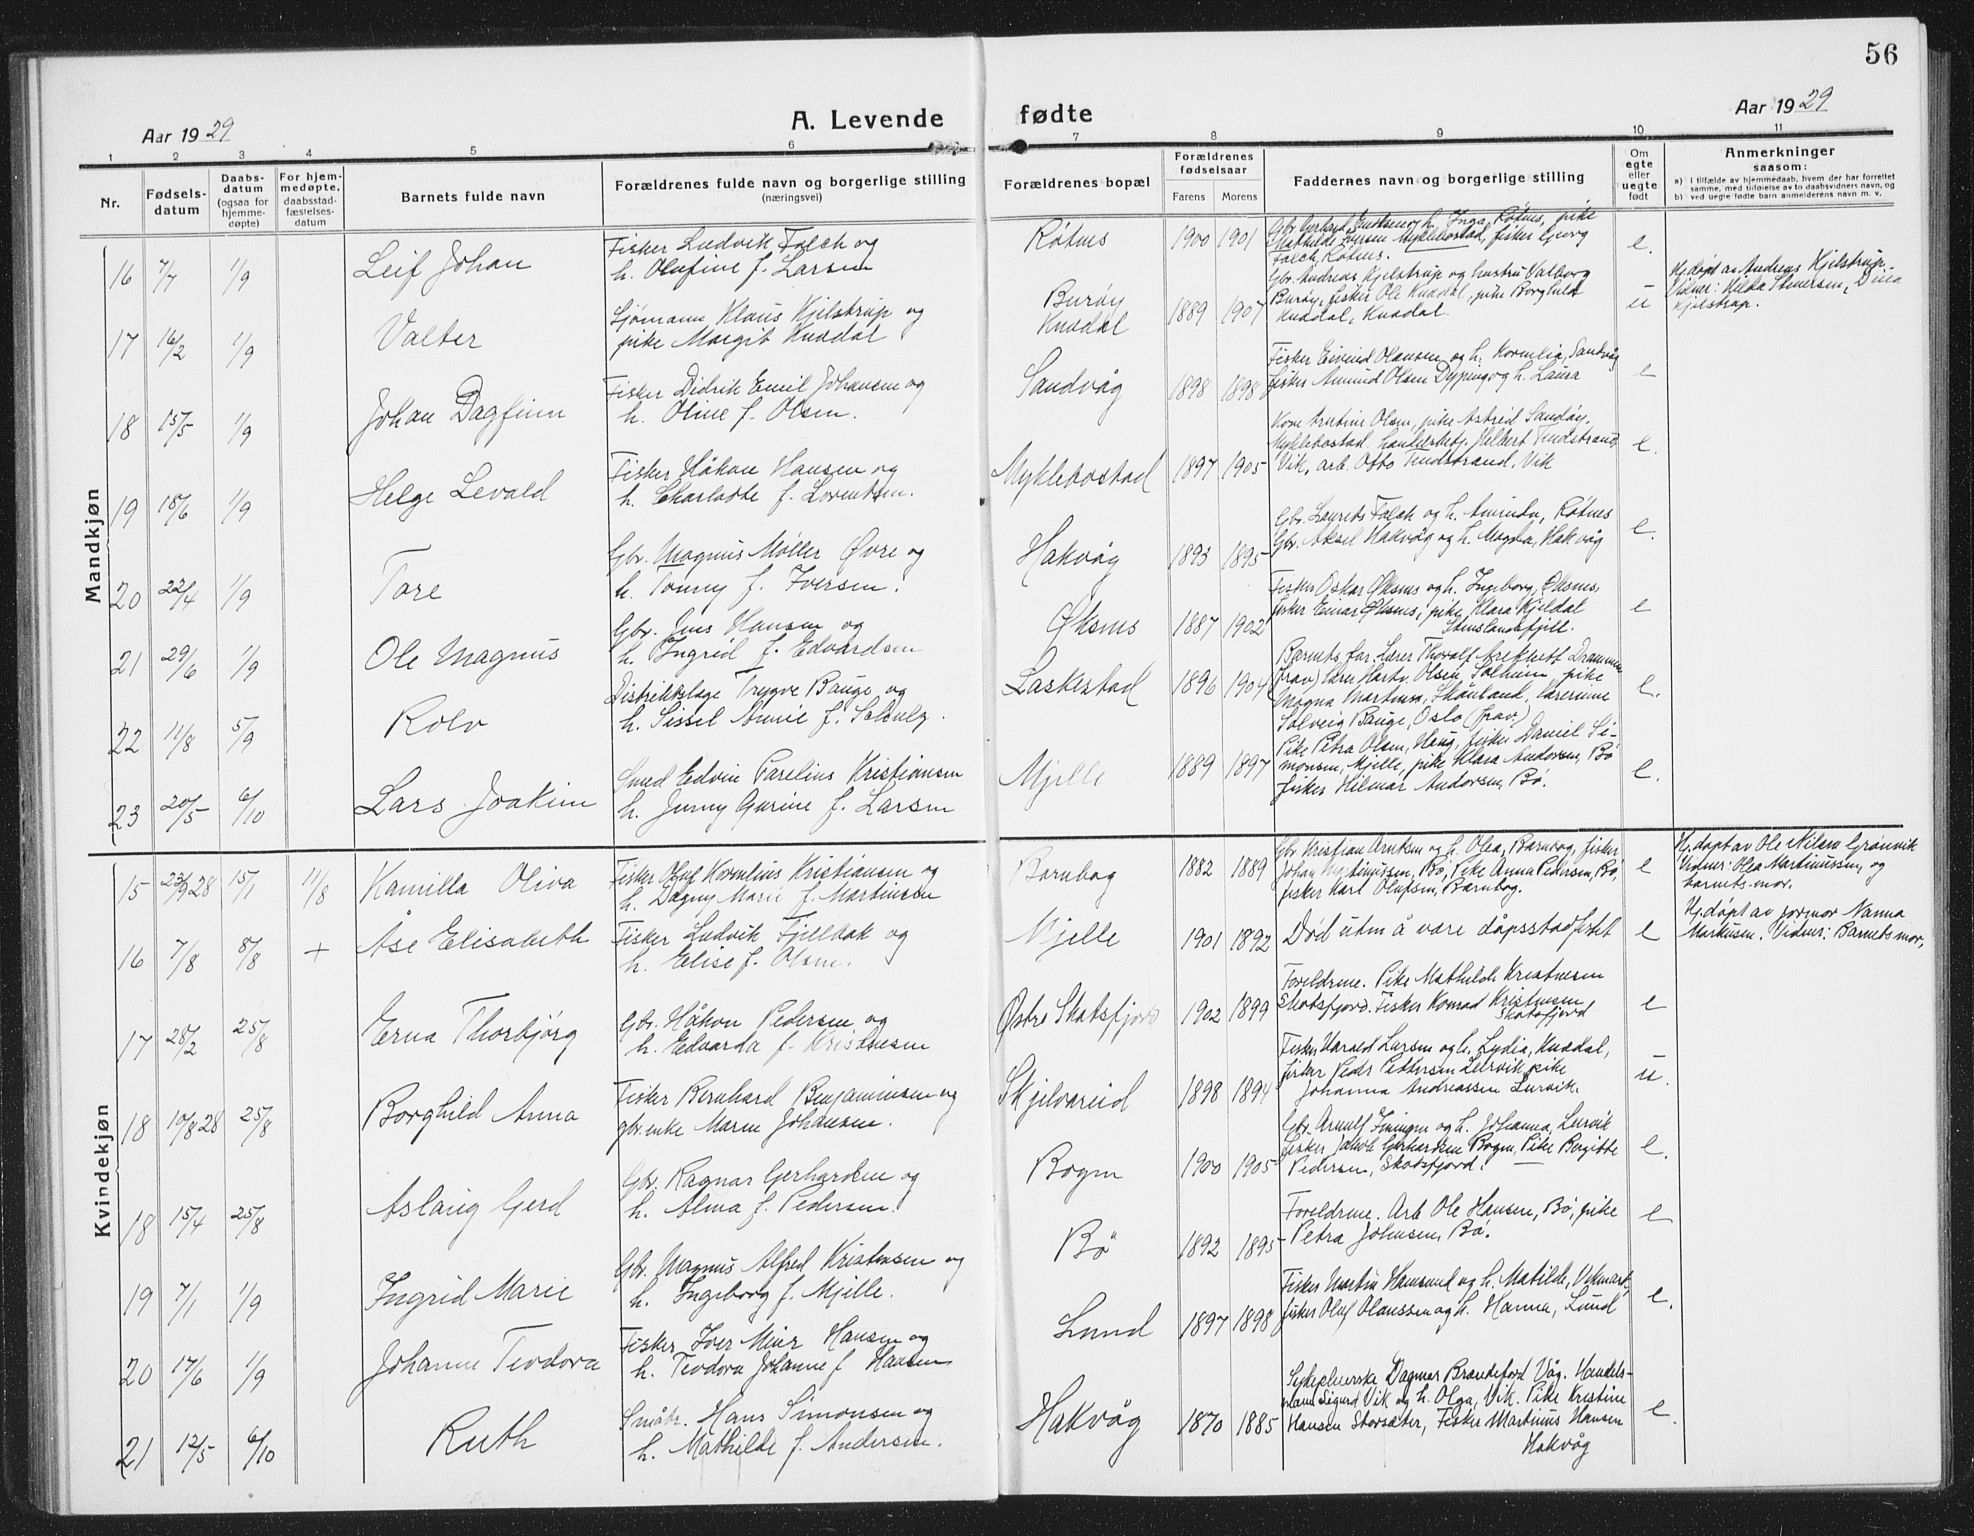 56
Aar 1929
A. Levende fødte
Aar 1929
1 2 3 4 5 6 7 8 9 10 11
Nr.
Fødsels-
datum
Daabs-
datum
(ogsaa for
hjemme-
døpte)
For hjem-
medøpte,
daabsstad-
fæstelses-
datum
Barnets fulde navn
Forældrenes fulde navn og borgerlige stilling
(næringsvei)
Forældrenes bopæl
Forældrenes
fødselsaar
Farens Morens
Faddernes navn og borgerlige stilling
Om
egte
eller
uegte
født
Anmerkninger
saasom:
a) I tilfælde av hjemmedaab, hvem der har forrettet
samme, med tilføielse av to daabsvidners navn, og
b) ved uegte fødte barn anmelderens navn m. v.
Mandkjøn
16 7/7 1/9 Leif Johan
Fisker Ludvik Falch og
h. Olufine f. Larsen
Røtnes 1900 1901
Mathilde Iversen Myklebostad, fisker Georg
Falch, Røtnes.
e.
17 16/2 1/9 Valter
Sjømann Klaus Kjelstrup og
pike Margit Knædal
Burøy
Knædal
1889 1907
Gbr. Andreas Kjelstrup og hustru Valborg
Burøy, fisker Ole Knædal, pike Borghild
Knædal, Knædal.
u
Hj.døpt av Andreas Kjelstrup.
Kjelstrup.
18 15/5 1/9 Johan Dagfinn
Fisker Didrik Emil Johansen og
h. Oline f. Olsen.
Sandvåg 1898 1898
Fisker Eivind Olausen og h. Kornelia, Sandvåg
fisker Amund Olsen Dyping og h. Laura
e
19 18/6 1/9 Helge Levald
Fisker Håkon Hansen og
h. Charlotte f. Lorentsen.
Myklebostad 1897 1905
Kone Arntine Olsen, pike Astrid Sandøy.
Myklebostad, handelsbetj. Helbert Tindstrand,
Vik, arb. Otto Tindstrand, Vik
e.
20 22/4 1/9 Tore
Gbr. Magnus Møller Øvre og
h. Tonny f. Iversen.
Hakvåg 1893 1895
Gbr. Laurits Falch og h. Aminda, Røtnes
Gbr. Aksel Hakvåg og h. Magda, Hakvåg
e.
21 29/6 1/9 Ole Magnus
Gbr. Jens Hansen og
h. Ingrid f. Edvardsen
Øksnes 1887 1902
Fisker Oskar Øksnes og h. Ingeborg, Øksnes,
fisker Einar Øksnes, pike Klara Kjeldal
Stenslandsfjell.
e
22 11/8 5/9 Rolv
Distriktslæge Trygve Bauge og
h. Sissel Annie f. Solvelg.
Laskestad 1896 1904
Barnets far. Lærer Thoralf Drammen
(frav.) lærer Hartv. Olsen, Solheim, pike
Magna Martinsen, Skånland, lærerinne
Solveig Bauge, Oslo (frav.)
e.
23 20/5 6/10 Lars Joakim
Smed Edvin Parelius Kristiansen
h. Jenny Gurine f. Larsen
Mjelle 1889 1897
Pike Petra Olsen, Haug, fisker Daniel Si-
monsen, Mjelle, pike Klara Andersen, Bø
fisker Hilmar Andersen, Bø.
e.
Kvindekjøn
15 23/9 28 15/1 11/8 Kamilla Oliva
Fisker Oluf Kornelius Kristiansen og
h. Dagny Marie f. Martinsen
Bornbog 1882 1889
Gbr Kristian Arntsen og h. Olea, Barnbog, fisker
Johan Martinussen, Bø, Pike Anna Pedersen, Bø,
fisker Karl Olufsen, Barnbog.
e
Hj.døpt av Ole Nilsen Grønvik
Vidner: Olea Martinussen, og
barnets mor.
16 7/8 8/8 + Åse Elisabeth
Fisker Ludvik Fjelldak og
h. Elise f. Olsen.
Mjelle 1901 1892
Død uten å være dåpsstadfestet
e
Hj.døpt av jormor Nanna
Markusen. Vidner: Barnets mor,
17 28/2 25/8 Erna Thorbjörg
Gbr. Håkon Pedersen og
h. Edvarda f. Kristensen
Østre Skotsfjord 1902 1899
Foreldrene. Pike Mathilde Kristensen
Skotsfjord. Fisker Konrad Kristensen,
Skotsfjord
e
18 10/8 28 25/8 Borghild Anna
Fisker Bernhard Benjaminsen og
gbr.enke Maren Johansen.
Skjelvareid 1898 1894
Fisker Harald Larsen og h. Lydia, Knædal,
fisker Peder Pettersen Leirvik, pike
Johanna Andreassen Leirvik.
u.
18 15/4 25/8 Aslaug Gerd
Gbr. Ragnar Gerhardsen og
h. Alma f. Pedersen.
Bogen 1900 1905
Gbr. Arnulf Iningen og h. Johanna, Leirvik
fisker Jakob Gerhardsen Bogen, Pike Bergitte
Pedersen, Skotsfjord.
e.
19 7/1 1/9 Ingrid Marie
Gbr. Magnus Alfred Kristensen og
h. Ingeborg f. Mjelle.
Bø 1892 1895
Foreldrene. Arb Ole Hansen, Bø, pike
Petra Johnsen, Bø.
e
20 17/6 1/9 Johanne Teodora
Fisker Iver Hansen og
h. Teodora Johanne f Hansen
Lund 1897 1898
Fisker Martin Hamsund og h. Matilde,
fisker Oluf Olaussen og h. Hanna, Lund
e.
21 12/5 6/10 Ruth
Småbr. Hans Simonsen og
h. Mathilde f. Andersen.
Hakvåg 1870 1885
Sykepleierske Dagmar Våg. Handels-
mann Sigurd Vik og h. Olga, Vik. Pike Kristine
Hansen Storsæter, Fisker Martinus Hansen
Hakvåg
e.